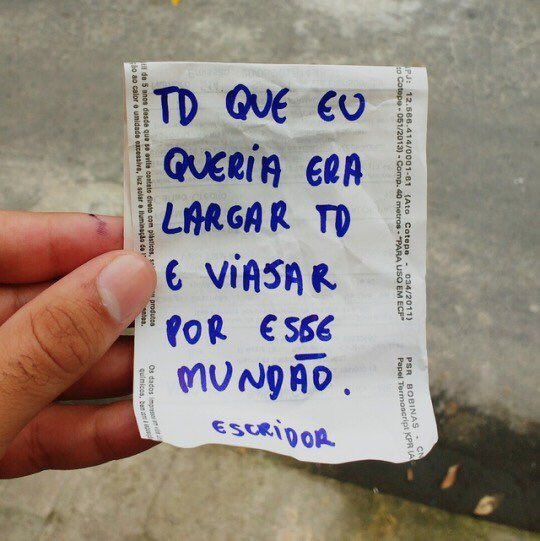 TD QUE EU
QUERIA ERA
LARGAR TD
E VIAJAR
POR ESSE
MUNDÃO.
ESCRIDOR
PJ: 12.566.414/0001-61 (Ato Cotepe - 034/2011)
o Cotepe - 051/2013) - Comp. 40 metros - "PARA USO EM ECF"
PSR BOBINAS - CN
Papel Termoscript KPR
de 5 anos desde que se evite contato direto com plásticos,
ao calor e umidade excessiva, luz solar e iluminação
produtos
Os dados
químicos,